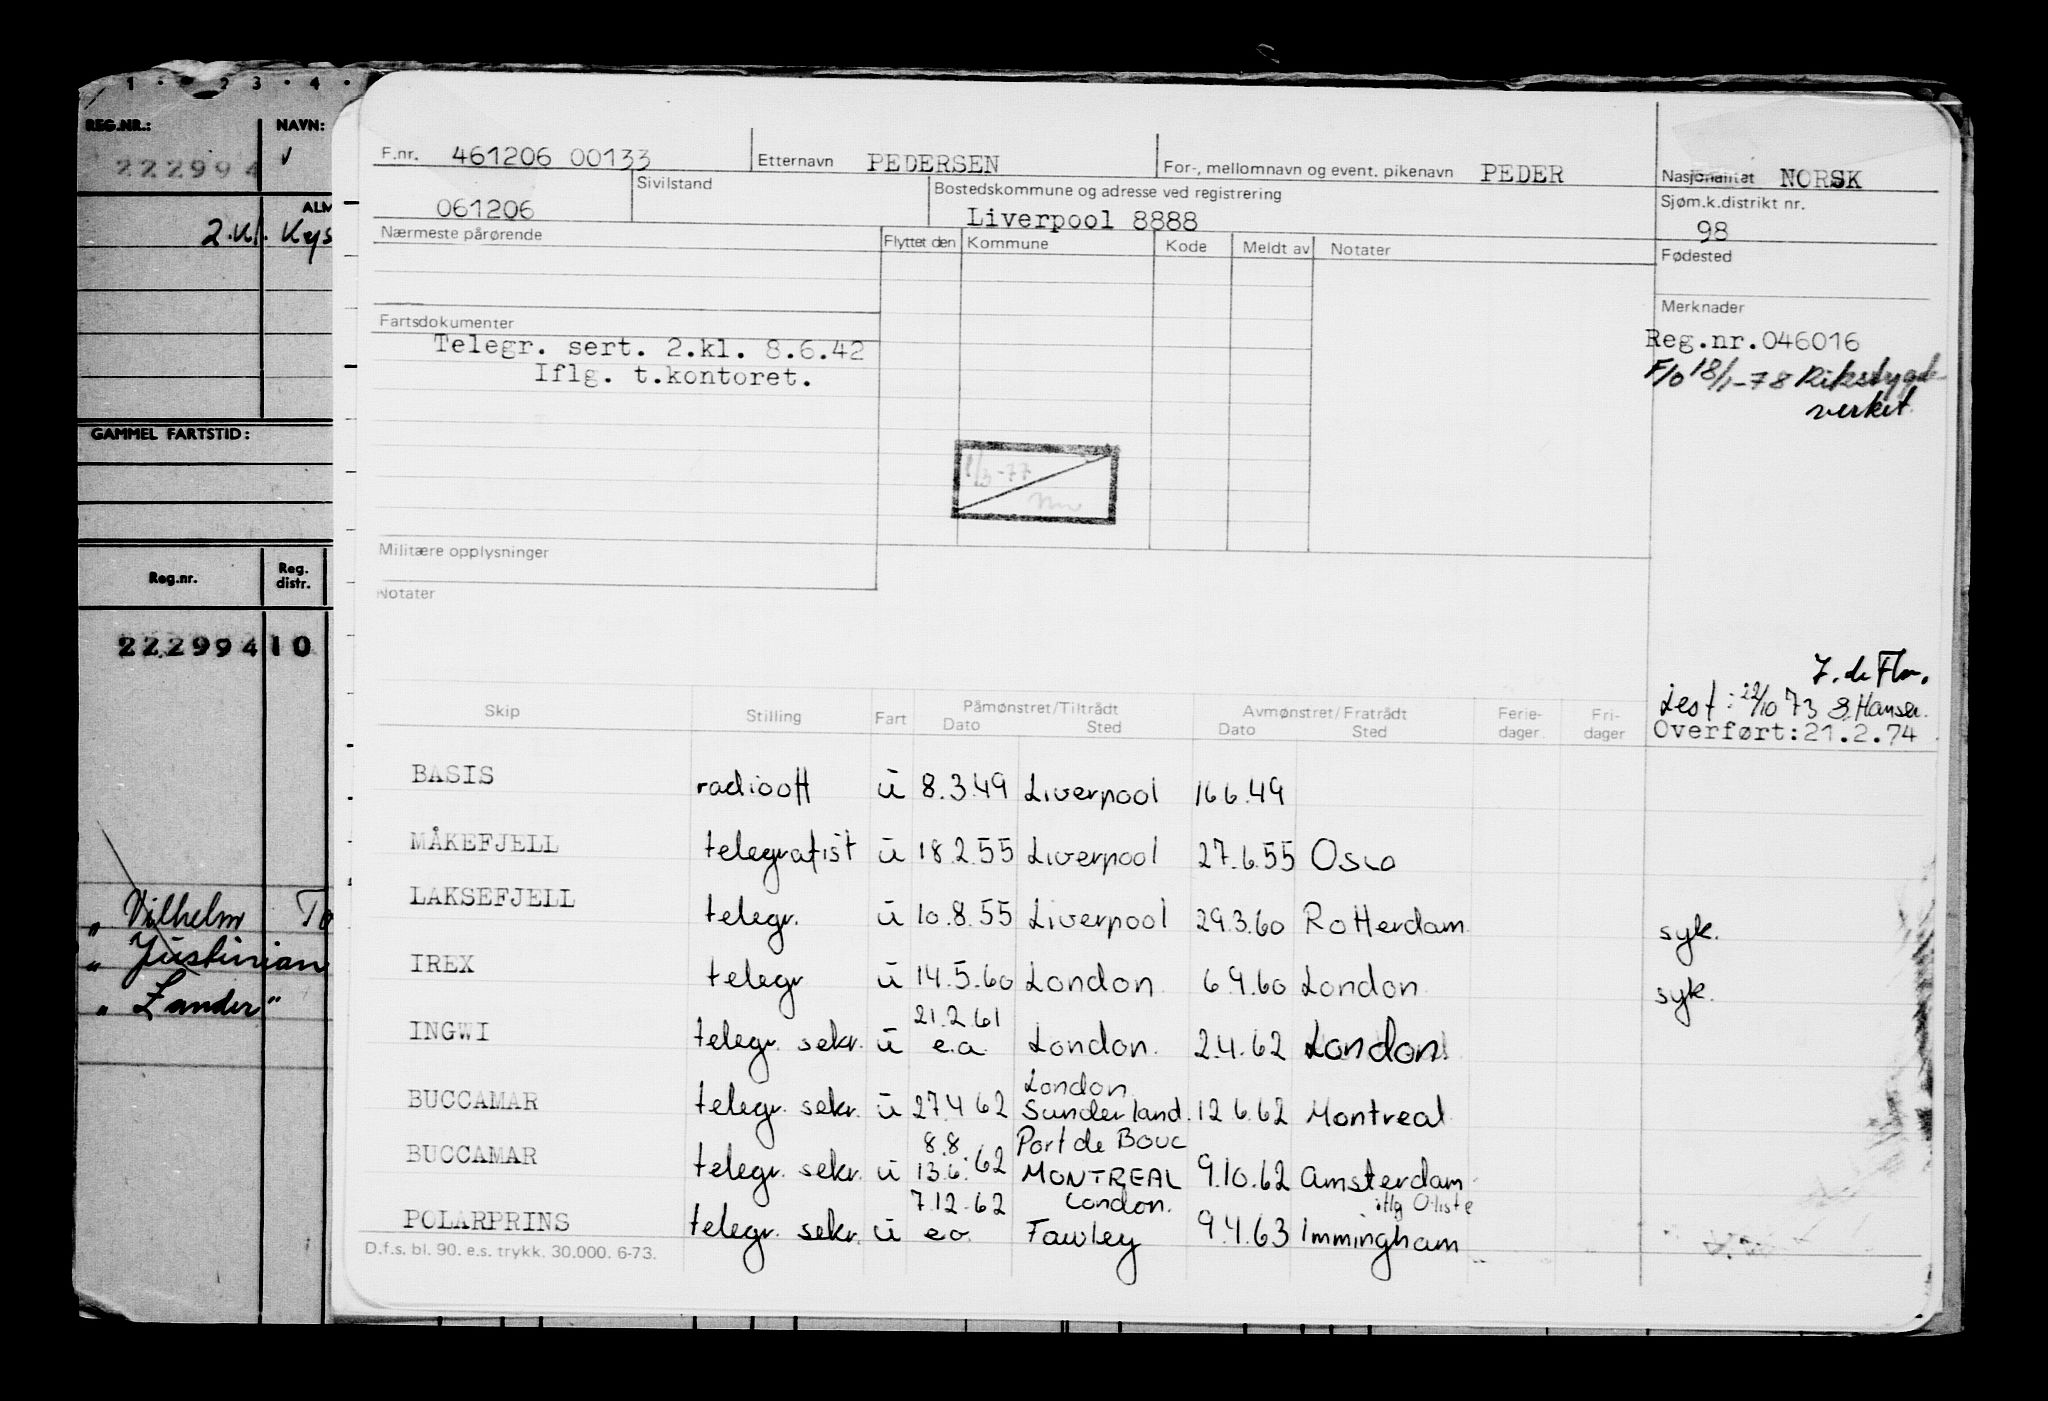 1 · 2 3 · 4 ·
REG.NR.: NAVN:
222994
ALM
2.kl. Kys
GAMMEL FARTSTID:
Reg.nr. Reg. distr.
222994 10
„ Vilhelm To
„ Justinian
„ Zander"
F.nr. 461206 00133 Etternavn PEDERSEN For-, mellomnavn og event. pikenavn PEDER Nasjonalitet NORSK
061206 Sivilstand Bostedskommune og adresse ved registrering Liverpool 8888 Sjøm.k.distrikt nr. 98
Nærmeste pårørende Flyttet den Kommune Kode Meldt av Notater Fødested
Merknader
Fartsdokumenter
Telegr. sert. 2.kl. 8.6.42
Iflg. t.kontoret.
Reg.nr.046016
F/o 18/1-78 Rikstrygde-
verket.
1/3-77
Militære opplysninger
Notater
J. de Flon.
Lest: 22/10 73 S. Hansen.
Overført:21.2.74
Skip Stilling Fart Påmønstret/Tiltrådt Dato Sted Avmønstret/Fratrådt Dato Sted Ferie-dager. Fri-dager
BASIS radiooff u 8.3.49 Liverpool 16 6.49
MÅKEFJELL telegrafist u 18.2.55 Liverpool 27.6.55 Oslo
LAKSEFJELL telegr. u 10.8.55 Liverpool 29.3.60 Rotterdam syk.
IREX telegr u 14.5.60 London 6.9.60 London syk.
21.2.61
INGWI telegr. sekr. u e.a. London. 2.4.62 London
London
BUCCAMAR telegr. sekr. u 27.4 62 Sunderland. 12 6.62 Montreal
8.8. Port de Bouc
BUCCAMAR telegr. sekr. u 13.6.62 MONTREAL 9.10.62 Amsterdam
7.12.62 London. iflg O.liste
POLARPRINS telegr. sekr. u e.o. Fawley 9.4.63 Immingham
D.f.s. bl. 90. e.s. trykk. 30.000. 6-73.